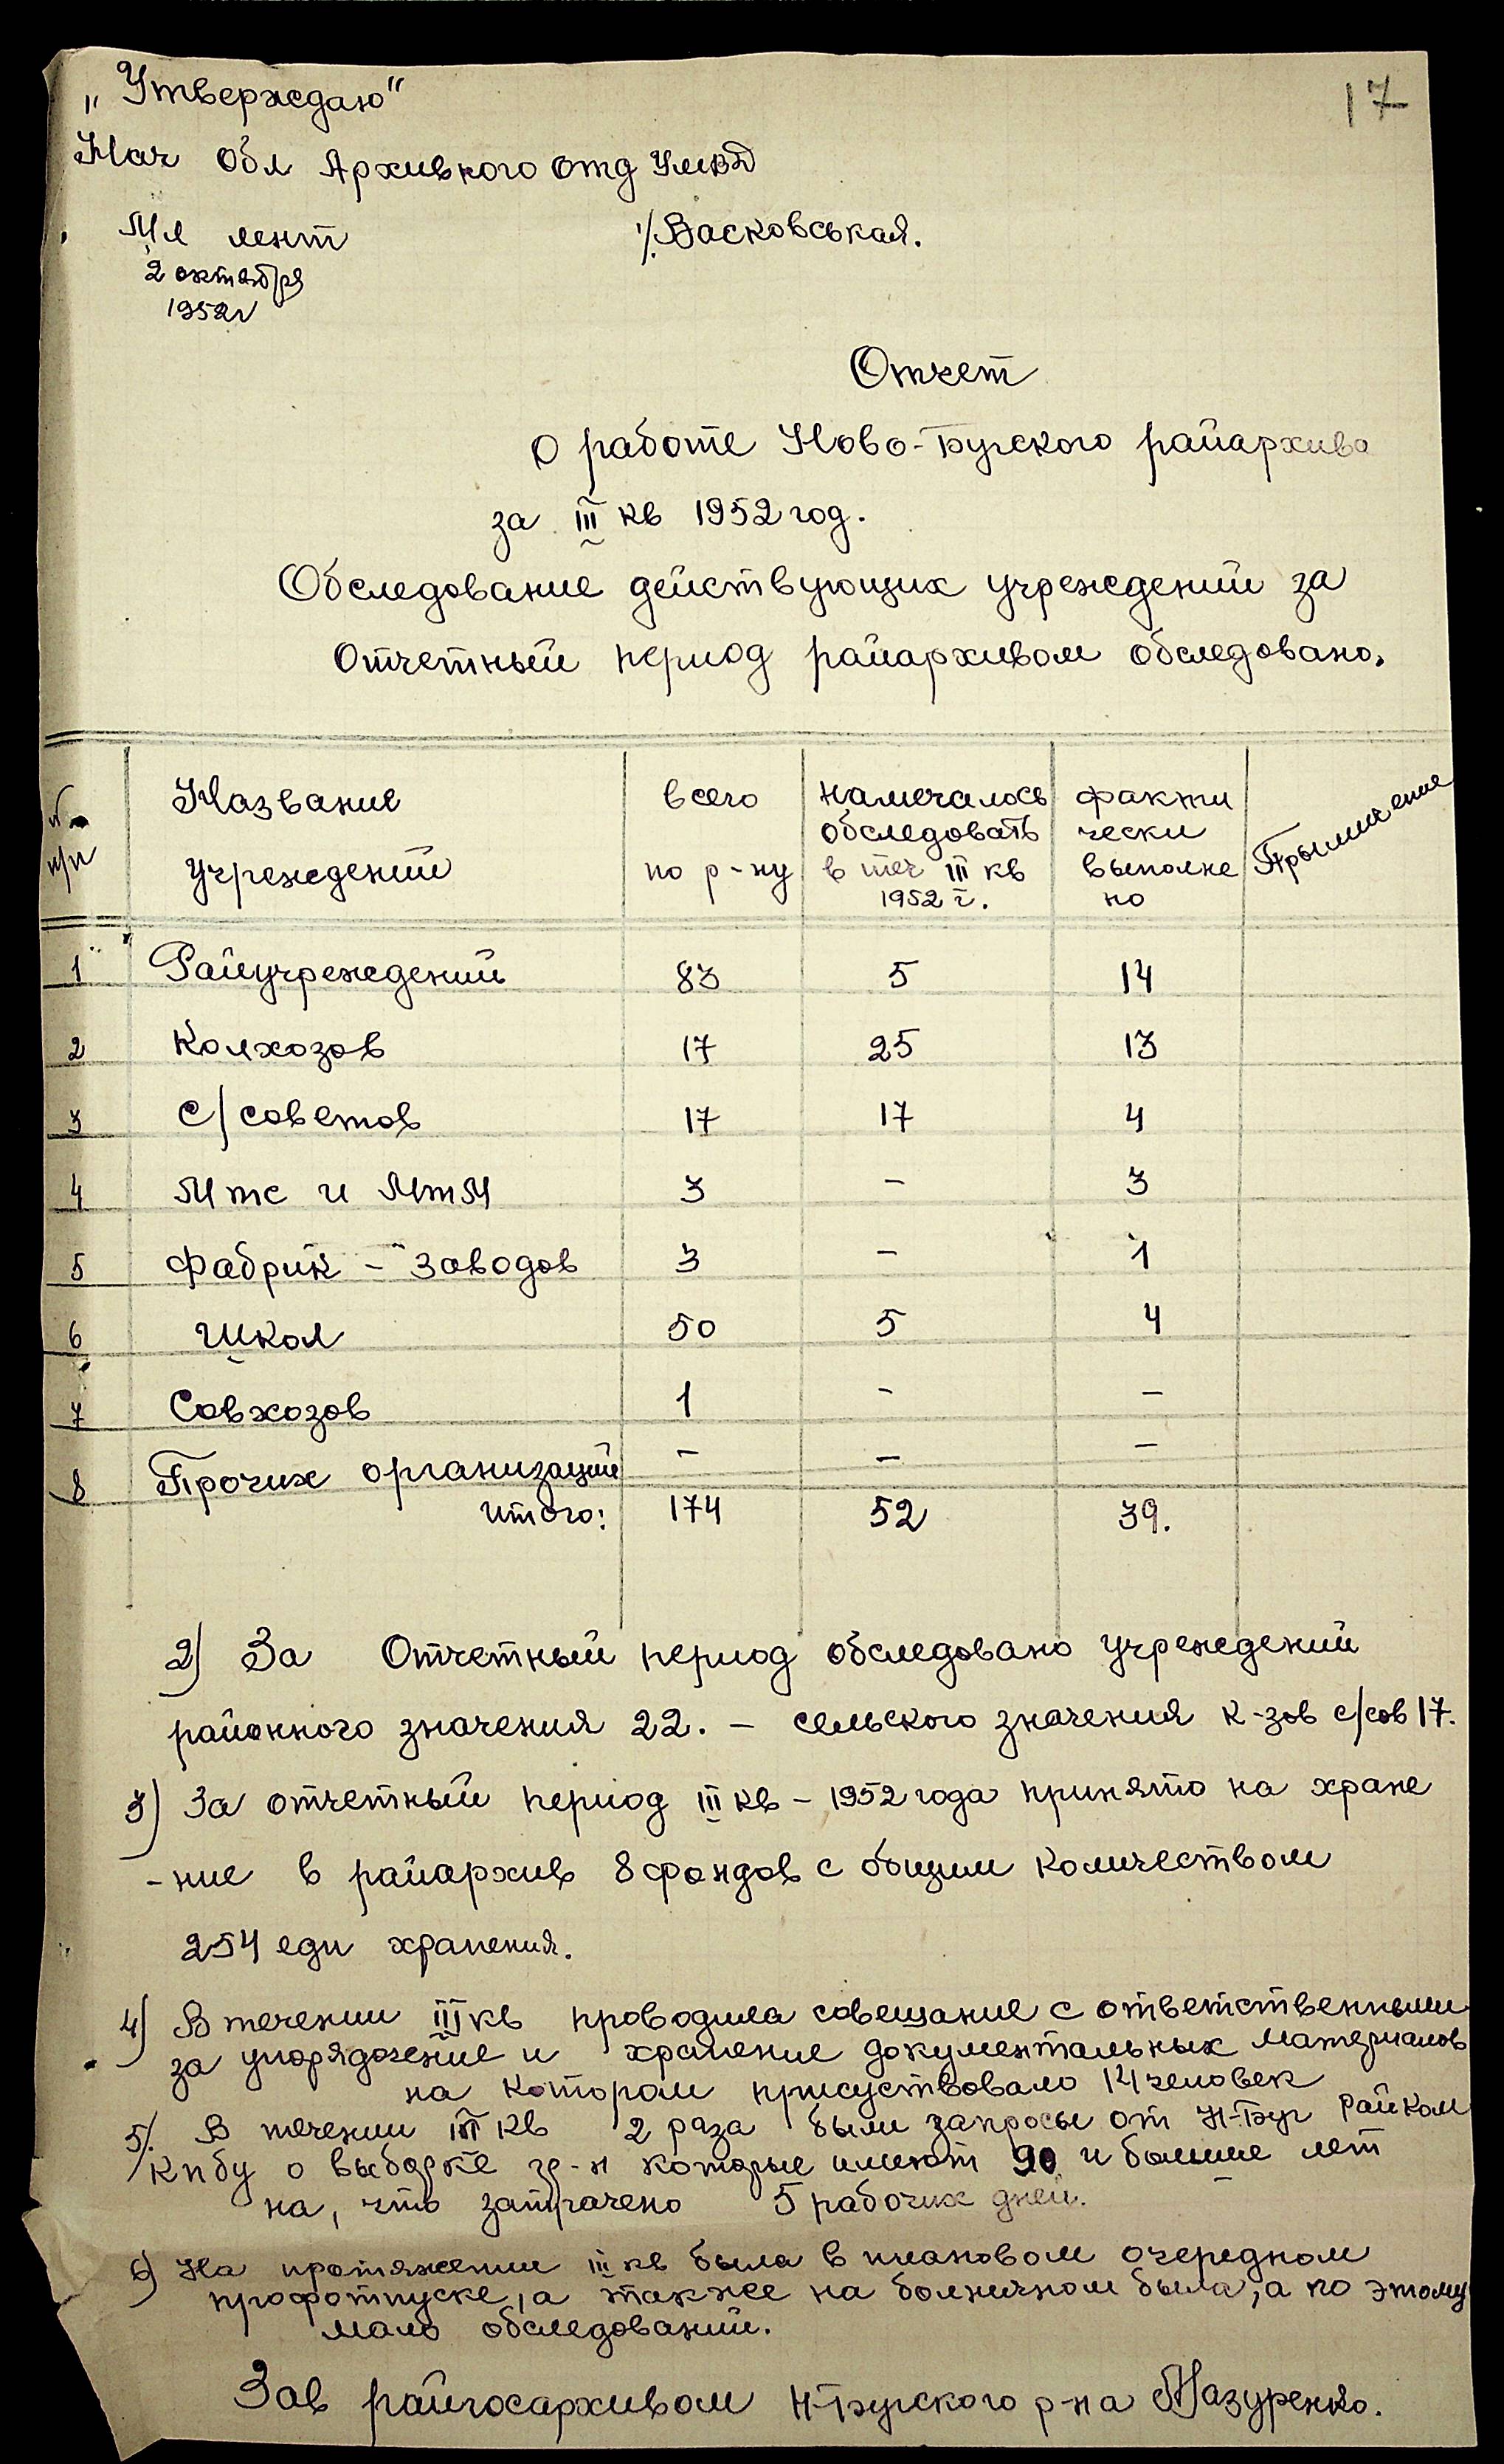 17
„Утверждаю"
Нач Обл Архивного отд Умвд
Мл лент /Васковськая.
2 октября
1952г
Отчет
О работе Ново-Бугского райархива
за III кв 1952 год.
Обследование действующих учреждений за
Отчетный период райархивом обследовано.
№ п/п Название учреждений всего по р-ну намечалось обследовать в теч III кв 1952 г. факти чески выполне но Прымичение
1 Райучреждений 83 5 14
2 Колхозов 17 25 13
3 С/советов 17 17 4
4 Мтс и МтМ 3 - 3
5 Фабрик - Заводов 3 - 1
6 Школ 50 5 4
7 Совхозов 1 - -
8 Прочих организаций - - -
Итого: 174 52 39.
2) За Отчетный период обследовано учреждений
районного значения 22. - сельского значения к-зов с/сов 17.
3) За отчетный период III кв - 1952 года принято на хране
-ние в райархив 8 фондов с общим количеством
254 еди хранения.
4) В течении III кв проводила совещание с ответственными
за упорядочение и хранение документальных материалов
на котором присуствовало 14 человек
5). В течении III кв 2 раза были запросы от Н-Буг Райком
Кпбу о выборке гр-н которые имеют 90 и больше лет
на, что затрачено 5 рабочих дней.
6) На протяжении III кв была в плановом очередном
профотпуске, а также на болничном была, а по этому
мало обследований.
Зав райгосархивом Н-Бугского р-на Мазуренко.